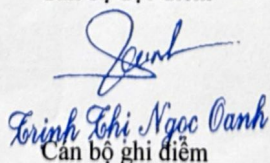 Trinh Thi Ngọc Oanh
Cán bộ ghi điểm